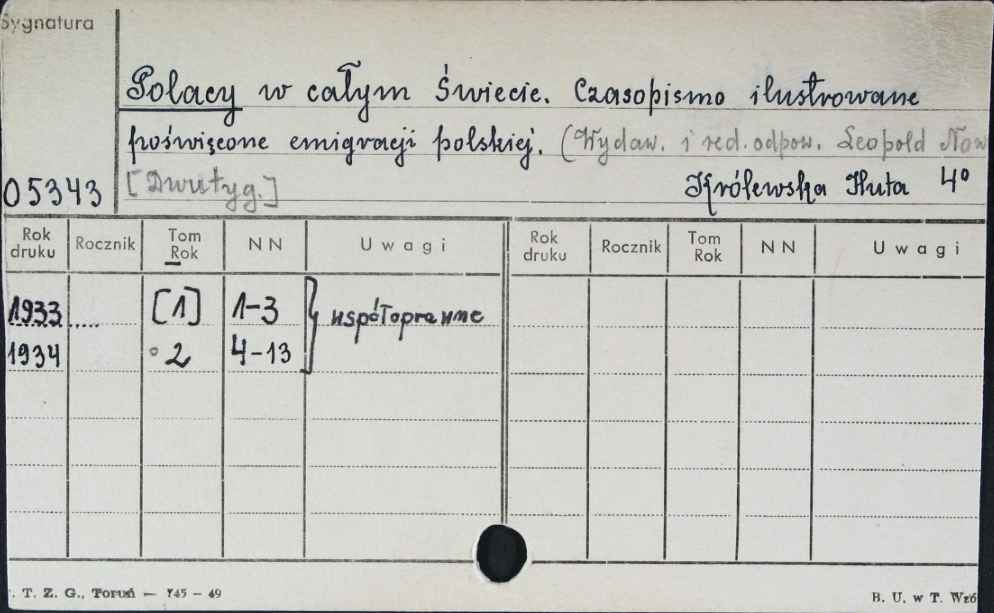 Sygnatura
Polacy w całym Świecie. Czasopismo ilustrowane
poświęcone emigracji polskiej. (Wydaw. i red. odpow. Leopold Now
05343 [Dwutyg.] Królewska Huta 4°
Rok druku Rocznik Tom Rok NN Uwagi Rok druku Rocznik Tom Rok NN Uwagi
1933 [1] 1-3 współoprawne
1934 2 4-13
T. Z. G., Toruń — 745 - 49 B. U. w T. Wzó